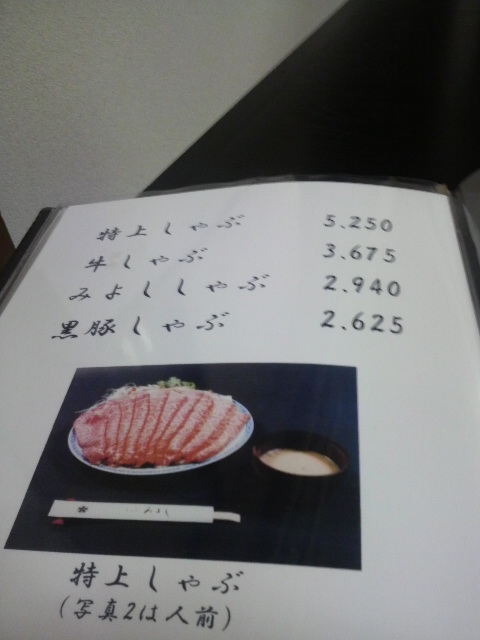 特上しゃぶ 5.250
牛しゃぶ 3.675
みよししゃぶ 2.940
黒豚しゃぶ 2.625
特上しゃぶ
(写真2は人前)